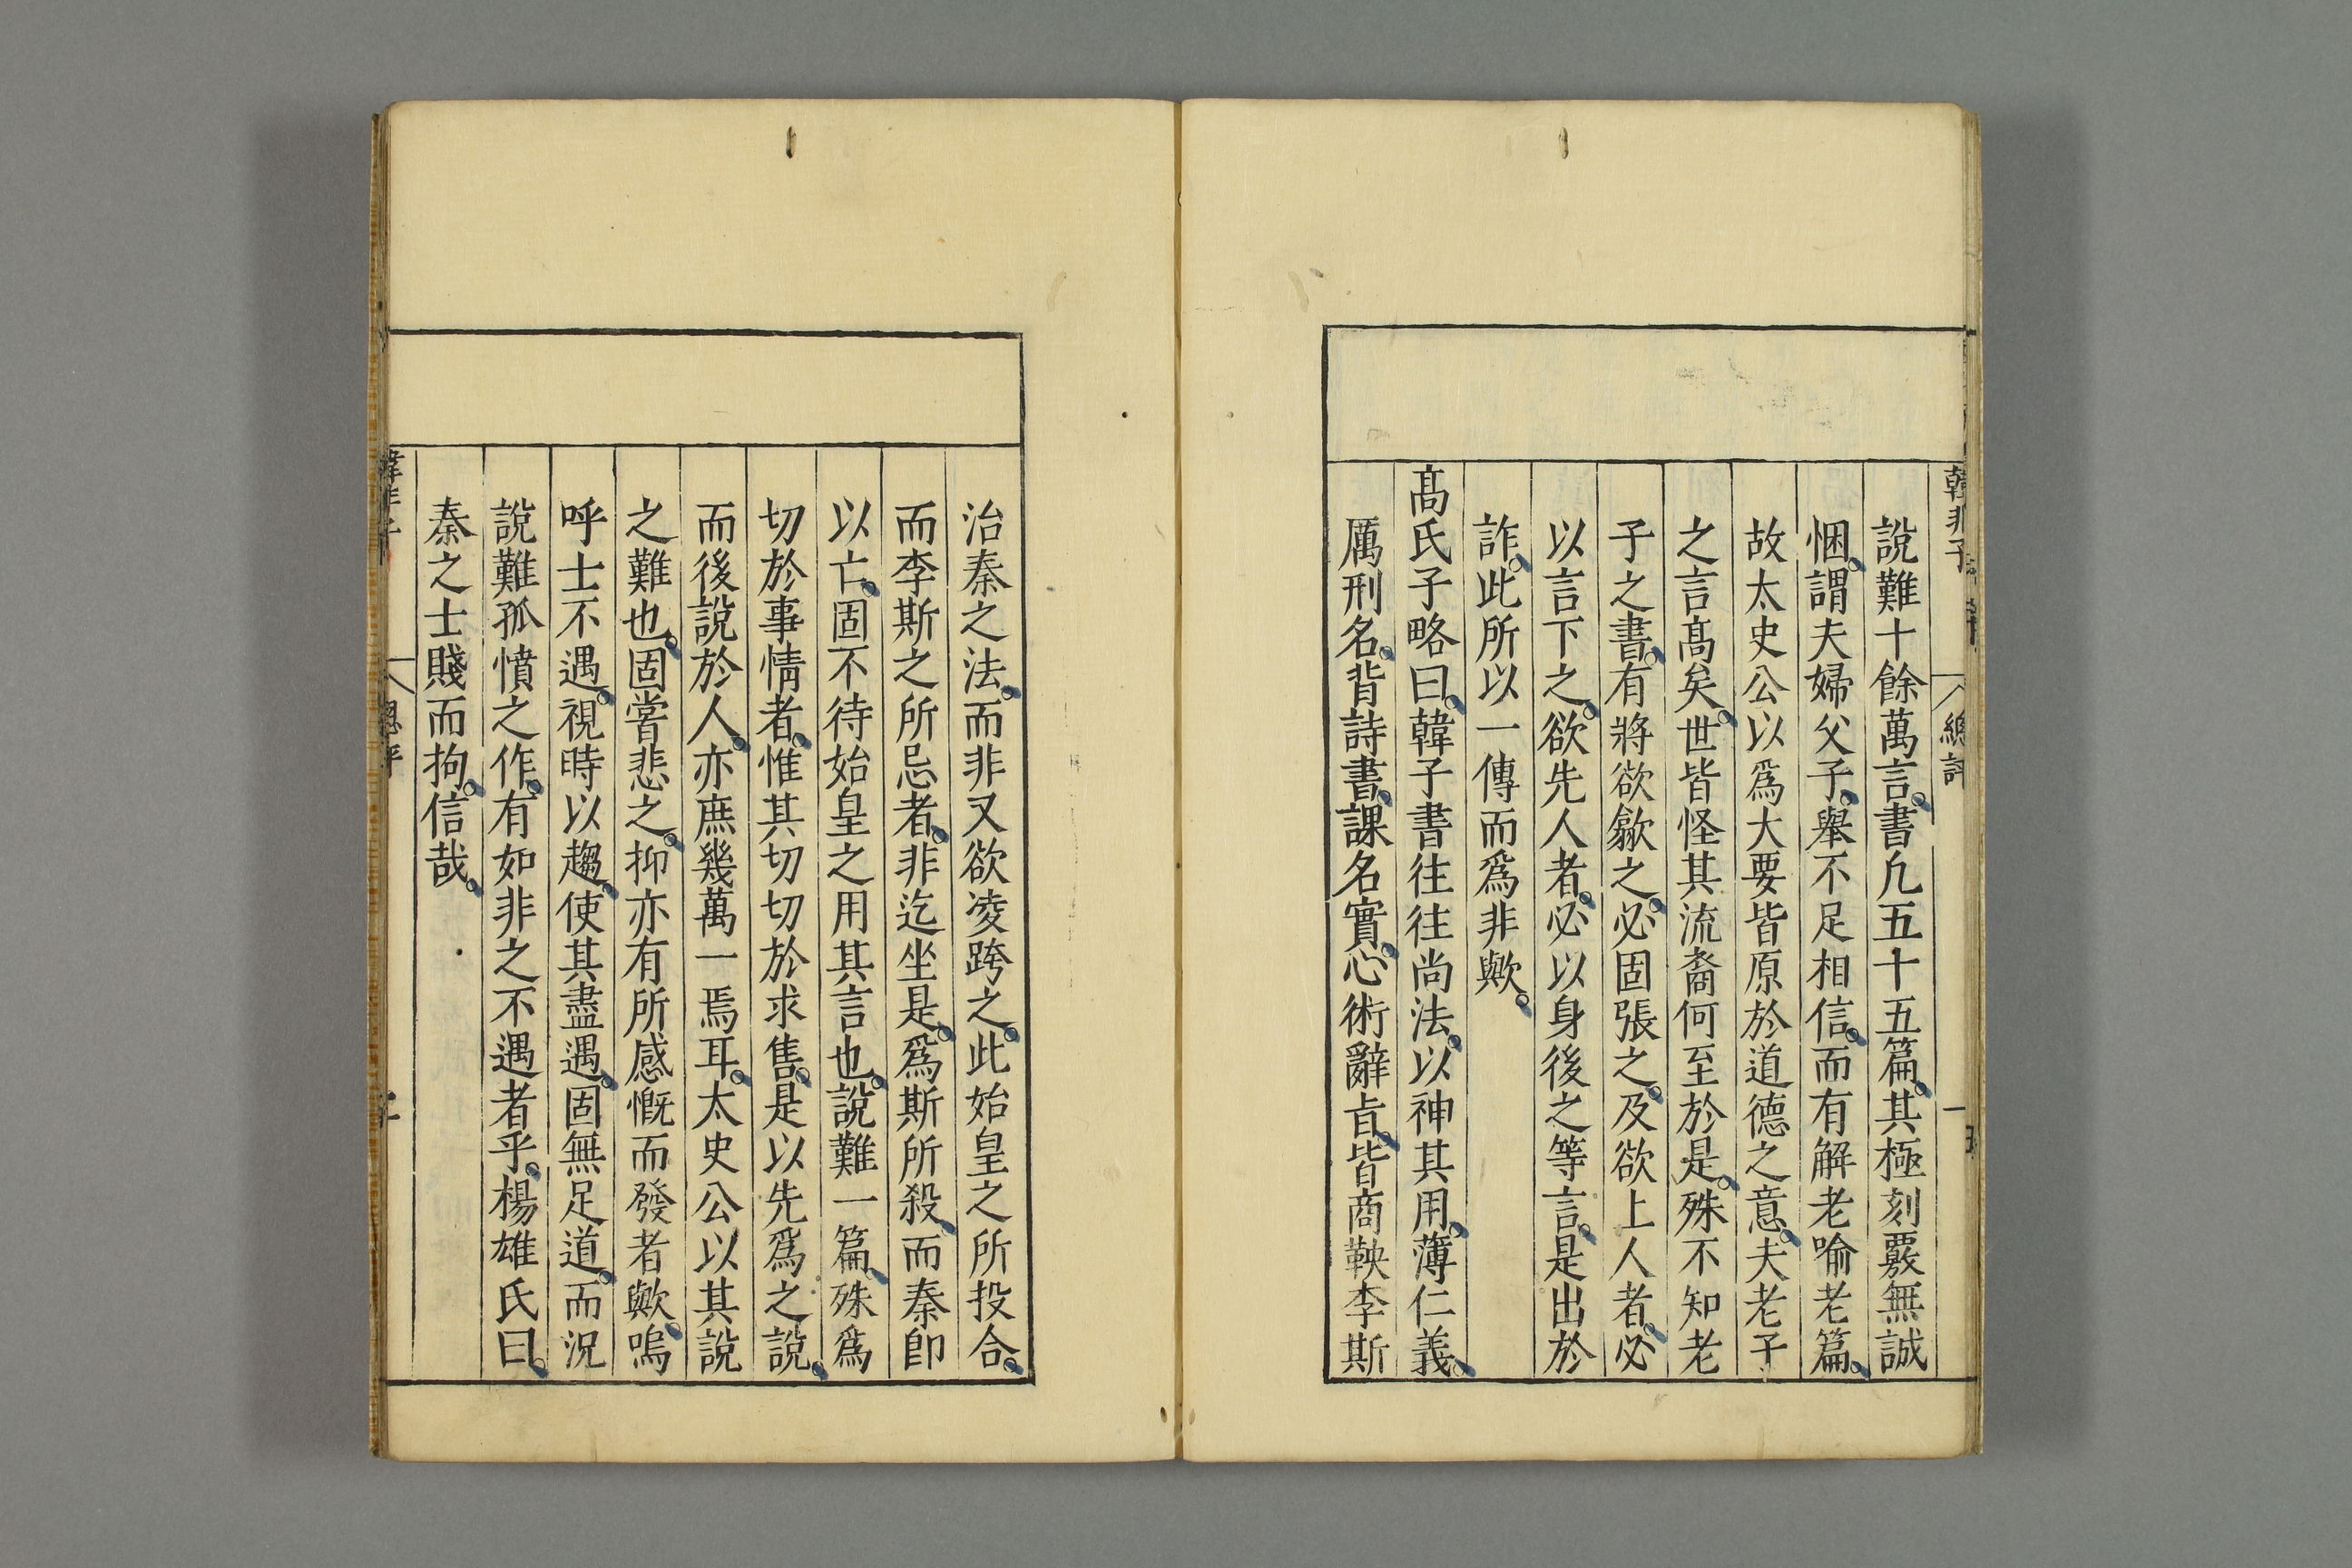 韓非子
總評
說難十餘萬言。書凢五十五篇。其極刻覈無誠
悃。謂夫婦父子。舉不足相信。而有解老喻老篇。
故太史公以爲大要皆原於道德之意。夫老子
之言髙矣。世皆怪其流裔何至於是。殊不知老
子之書。有將欲歙之。必固張之。及欲上人者。必
以言下之。欲先人者。必以身後之等言。是出於
詐。此所以一傳而爲非歟。
髙氏子略曰。韓子書往往尚法。以神其用。薄仁義。
厲刑名。背詩書。課名實。心術辭旨。皆商鞅李斯
治秦之法。而非又欲凌跨之。此始皇之所投合。
而李斯之所忌者。非迄坐是。爲斯所殺。而秦卽
以亡。固不待始皇之用其言也。說難一篇。殊爲
切於事情者。惟其切切於求售。是以先爲之說。
而後說於人。亦庶幾萬一焉耳。太史公以其說
之難也。固嘗悲之。抑亦有所感慨而發者歟。嗚
呼士不遇。視時以趨。使其盡遇。固無足道。而況
說難孤憤之作。有如非之不遇者乎。楊雄氏曰。
秦之士賤而拘。信哉。